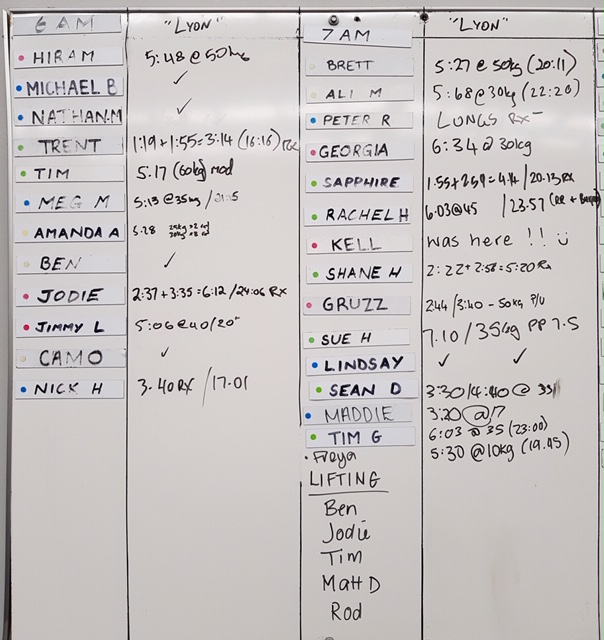 6 AM "LYON"
HIRAM 5:48 @ 50kg
MICHAEL B ✓
NATHAN.M ✓
TRENT 1:19 + 1:55 = 3:14 (16:16) RX
TIM 5:17 (60kg) mod
MEG M 5:13 @ 35kg /
AMANDA A 5:28
BEN ✓
JODIE 2:37 + 3:35 = 6:12 / 24:06 RX
JIMMY L 5:06 @ 40/20"
CAMO ✓
NICK H 3.40 RX / 17.01
7 AM "LYON"
BRETT 5:27 @ 50kg (20:11)
ALI M 5:68 @ 30kg (22:20)
PETER R LUNGS RX
GEORGIA 6:34 @ 30kg
SAPPHIRE 1:55 + 2:59 = / 20:13 RX
RACHEL H 6.03 @ 45 / 23:57
KELL was here !!
SHANE H 2:22 + 2:58 = 5:20 Rx
GRUZZ 244 / 3:40 - 50kg P/U
SUE H 7.10 / 35kg PP 7.5
LINDSAY ✓ ✓
SEAN D 3:30 / 4:40 @ 35
MADDIE 3:20 @ 17
TIM G 6:03 @ 35 (23:00)
Freya 5:30 @ 10kg (19.45)
LIFTING
Ben
Jodie
Tim
Matt D
Rod